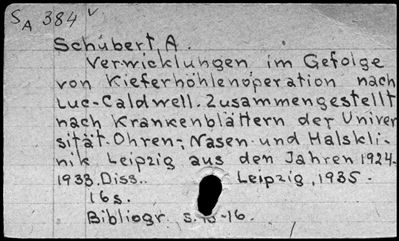 SA 384 v
Schubert, A.
Verwicklungen im Gefolge
von Kieferhöhlenoperation nach
Luc-Caldwell. Zusammengestellt
nach Krankenblättern der Univer
sität-Ohren-, Nasen- und Halskli-
nik Leipzig aus den Jahren 1924-
1933. Diss. Leipzig, 1935.
16 s.
Bibliogr. s. -16.